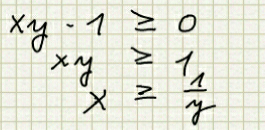 xy - 1 ≥ 0
xy ≥ 1
x ≥ 1/y